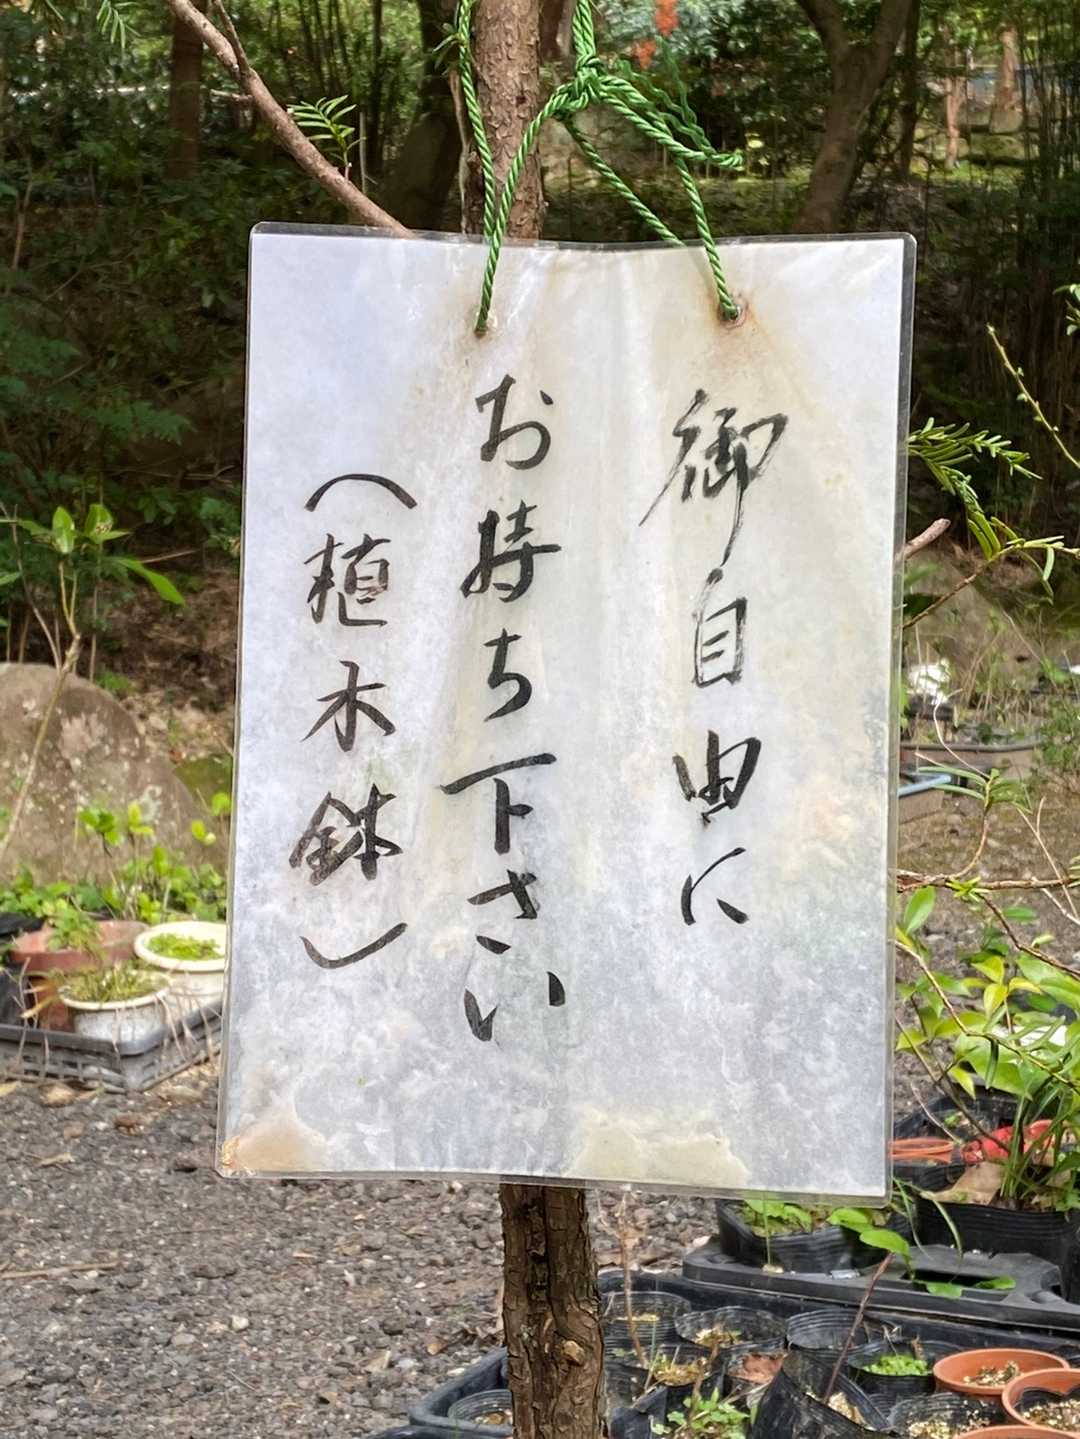 御自由に
お持ち下さい
(植木鉢)